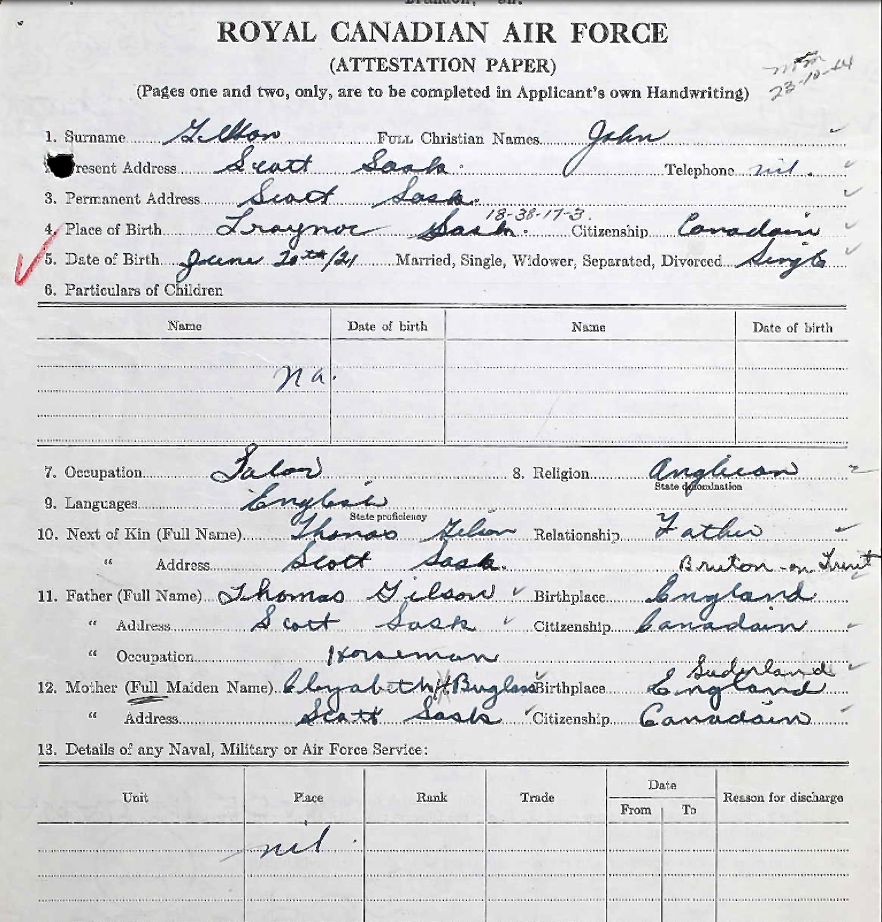 ROYAL CANADIAN AIR FORCE
(ATTESTATION PAPER)
(Pages one and two, only, are to be completed in Applicant's own Handwriting)
23-10-44
1. Surname Gilson FULL Christian Names John
Present Address Scott Sask. Telephone nil.
3. Permanent Address Scott Sask.
18-38-17-3.
4. Place of Birth Traynor Sask. Citizenship Canadain
5. Date of Birth June 20th/21 Married, Single, Widower, Separated, Divorced Single
6. Particulars of Children
Name Date of birth Name Date of birth
na.
7. Occupation 8. Religion Anglican
State denomination
9. Languages English
State proficiency
10. Next of Kin (Full Name) Thomas Gilson Relationship Father
" Address Scott Sask. Bruton-on Trent
11. Father (Full Name) Thomas Gilson Birthplace England
" Address Scott Sask Citizenship Canadain
" Occupation Horseman
Suderland
12. Mother (Full Maiden Name) Elyzabeth Buglass Birthplace England
" Address Scott Sask Citizenship Canadain
13. Details of any Naval, Military or Air Force Service:
Unit Place Rank Trade Date Reason for discharge
From To
nil